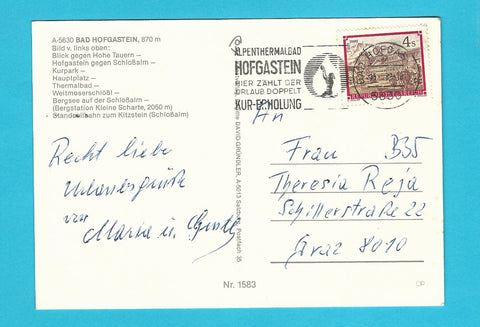 A-5630 BAD HOFGASTEIN, 870 m
Bild v. links oben:
Blick gegen Hohe Tauern –
Hofgastein gegen Schloßalm –
Kurpark –
Hauptplatz –
Thermalbad –
Weitmoserschlößl –
Bergsee auf der Schloßalm –
(Bergstation Kleine Scharte, 2050 m)
Standseilbahn zum Kitzstein (Schloßalm)
Recht liebe
Urlaubsgrüße
von
Maria u.
DAVID-GRÜNDLER, A-5013 Salzburg, Postfach 35
ALPENTHERMALBAD
HOFGASTEIN
HIER ZÄHLT DER
URLAUB DOPPELT
KUR-ERHOLUNG
4 S
5630
An
Frau B35
Theresia Reja
Schillerstraße 22
Graz 8010
Nr. 1583